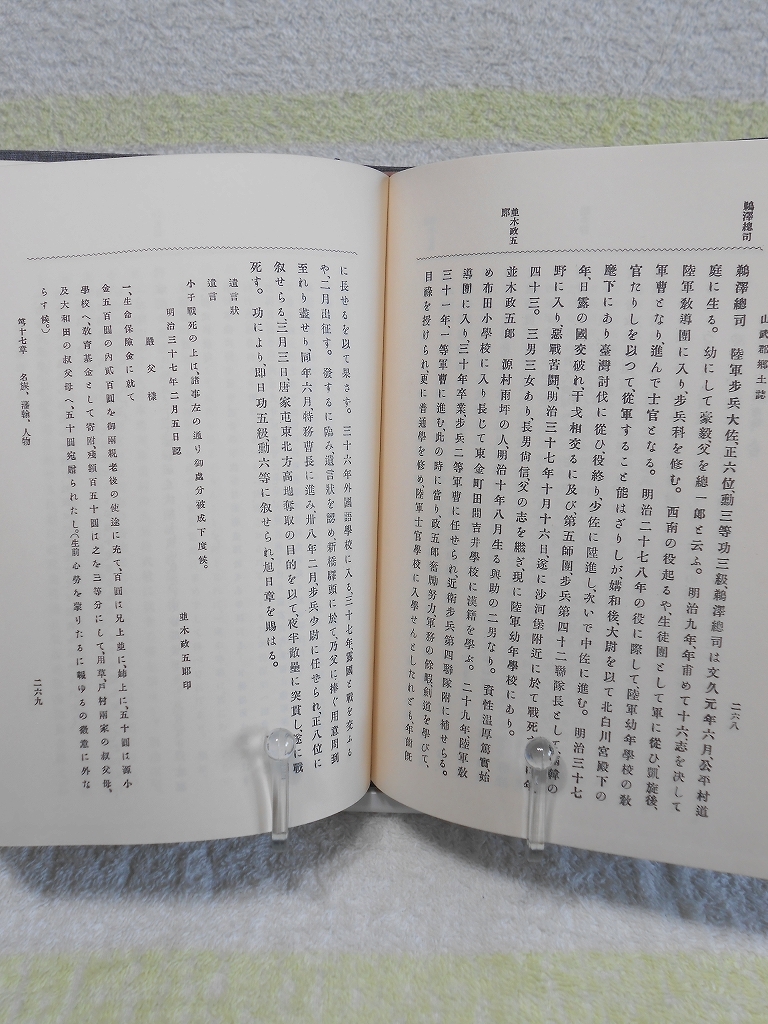 山武郡郷土誌
二六八
鵜澤總司
鵜澤總司 陸軍步兵大佐、正六位、勳三等功三級鵜澤總司は文久元年六月、公平村道
庭に生る。幼にして豪毅父を總一郎と云ふ。明治九年、年甫めて十六、志を決して
陸軍教導團に入り、步兵科を修む。西南の役起るや生徒團として軍に從ひ、凱旋後、
軍曹となり、進んで士官となる。明治二十七八年の役に際して、陸軍幼年學校の教
官たりしを以つて、從軍すること能はざりしが、媾和後、大尉を以て北白川宮殿下の
麾下にあり臺灣討伐に從ひ、役終り、少佐に陞進し、次いで中佐に進む。明治三十七
年、日露の國交破れ、干戈相交るに及び、第五師團步兵第四十二聯隊長として、
野に入り、惡戰苦鬪、明治三十七年十月十六日、遂に沙河堡附近に於て戰死
四十三。三男三女あり、長男尙信、父の志を繼ぎ、現に陸軍幼年學校にあり。
並木政五郎
並木政五郎 源村雨坪の人、明治十年八月生る與助の二男なり。資性温厚篤實、始
め布田小學校に入り長じて東金町田間吉井學校に漢籍を學ぶ。二十九年陸軍敎
導團に入り、三十年卒業、步兵二等軍曹に任せられ近衛步兵第四聯隊附に補せらる。
三十一年、一等軍曹に進む、此の時に當り、政五郎奮勵努力軍務の餘暇劍道を學びて、
目祿を授けられ、更に普通學を修め、陸軍士官學校に入學せんとしたれども、年齡旣
に長せるを以て果さず。三十六年外國語學校に入る、三十七年、露國と戰を交ふる
や、二月出征す。發するに臨み遺言狀を認め新橋驛頭に於て、乃父に捧ぐ用意周到
至れり盡せり、同年六月、特務曹長に進み、卅八年二月、步兵少尉に任せられ、正八位に
叙せらる、三月三日、唐家屯東北方高地奪取の目的を以て、夜半敵壘に突貫し、遂に戰
死す。功により、即日功五級、勳六等に叙せられ、旭日章を賜はる。
遺言狀
遺言
小子戰死の上は、諸事左の通り御處分被成下度候。
明治三十七年二月五日認
並木政五郎印
嚴父樣
一、生命保險金に就て
金五百圓の內貳百圓を御兩親老後の使途に充て、百圓は兄上並に、姉上に、五十圓は源小
學校へ、敎育基金として寄附殘額百五十圓は之を三等分にして、用草、戸村兩家の叔父母、
及大和田の叔父母へ、五十圓宛贈られたし。(生前心勞を蒙りたるに報ゆるの微意に外な
らず候。)
第十七章 名族、藩翰、人物
二六九